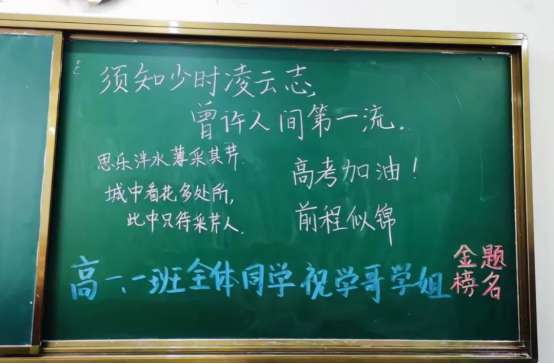 须知少时凌云志,
曾许人间第一流.
思乐泮水薄采其芹.
城中看花多处所,
此中只待采芹人.
高考加油!
前程似锦
高一、一班全体同学祝学哥学姐
金榜
题名